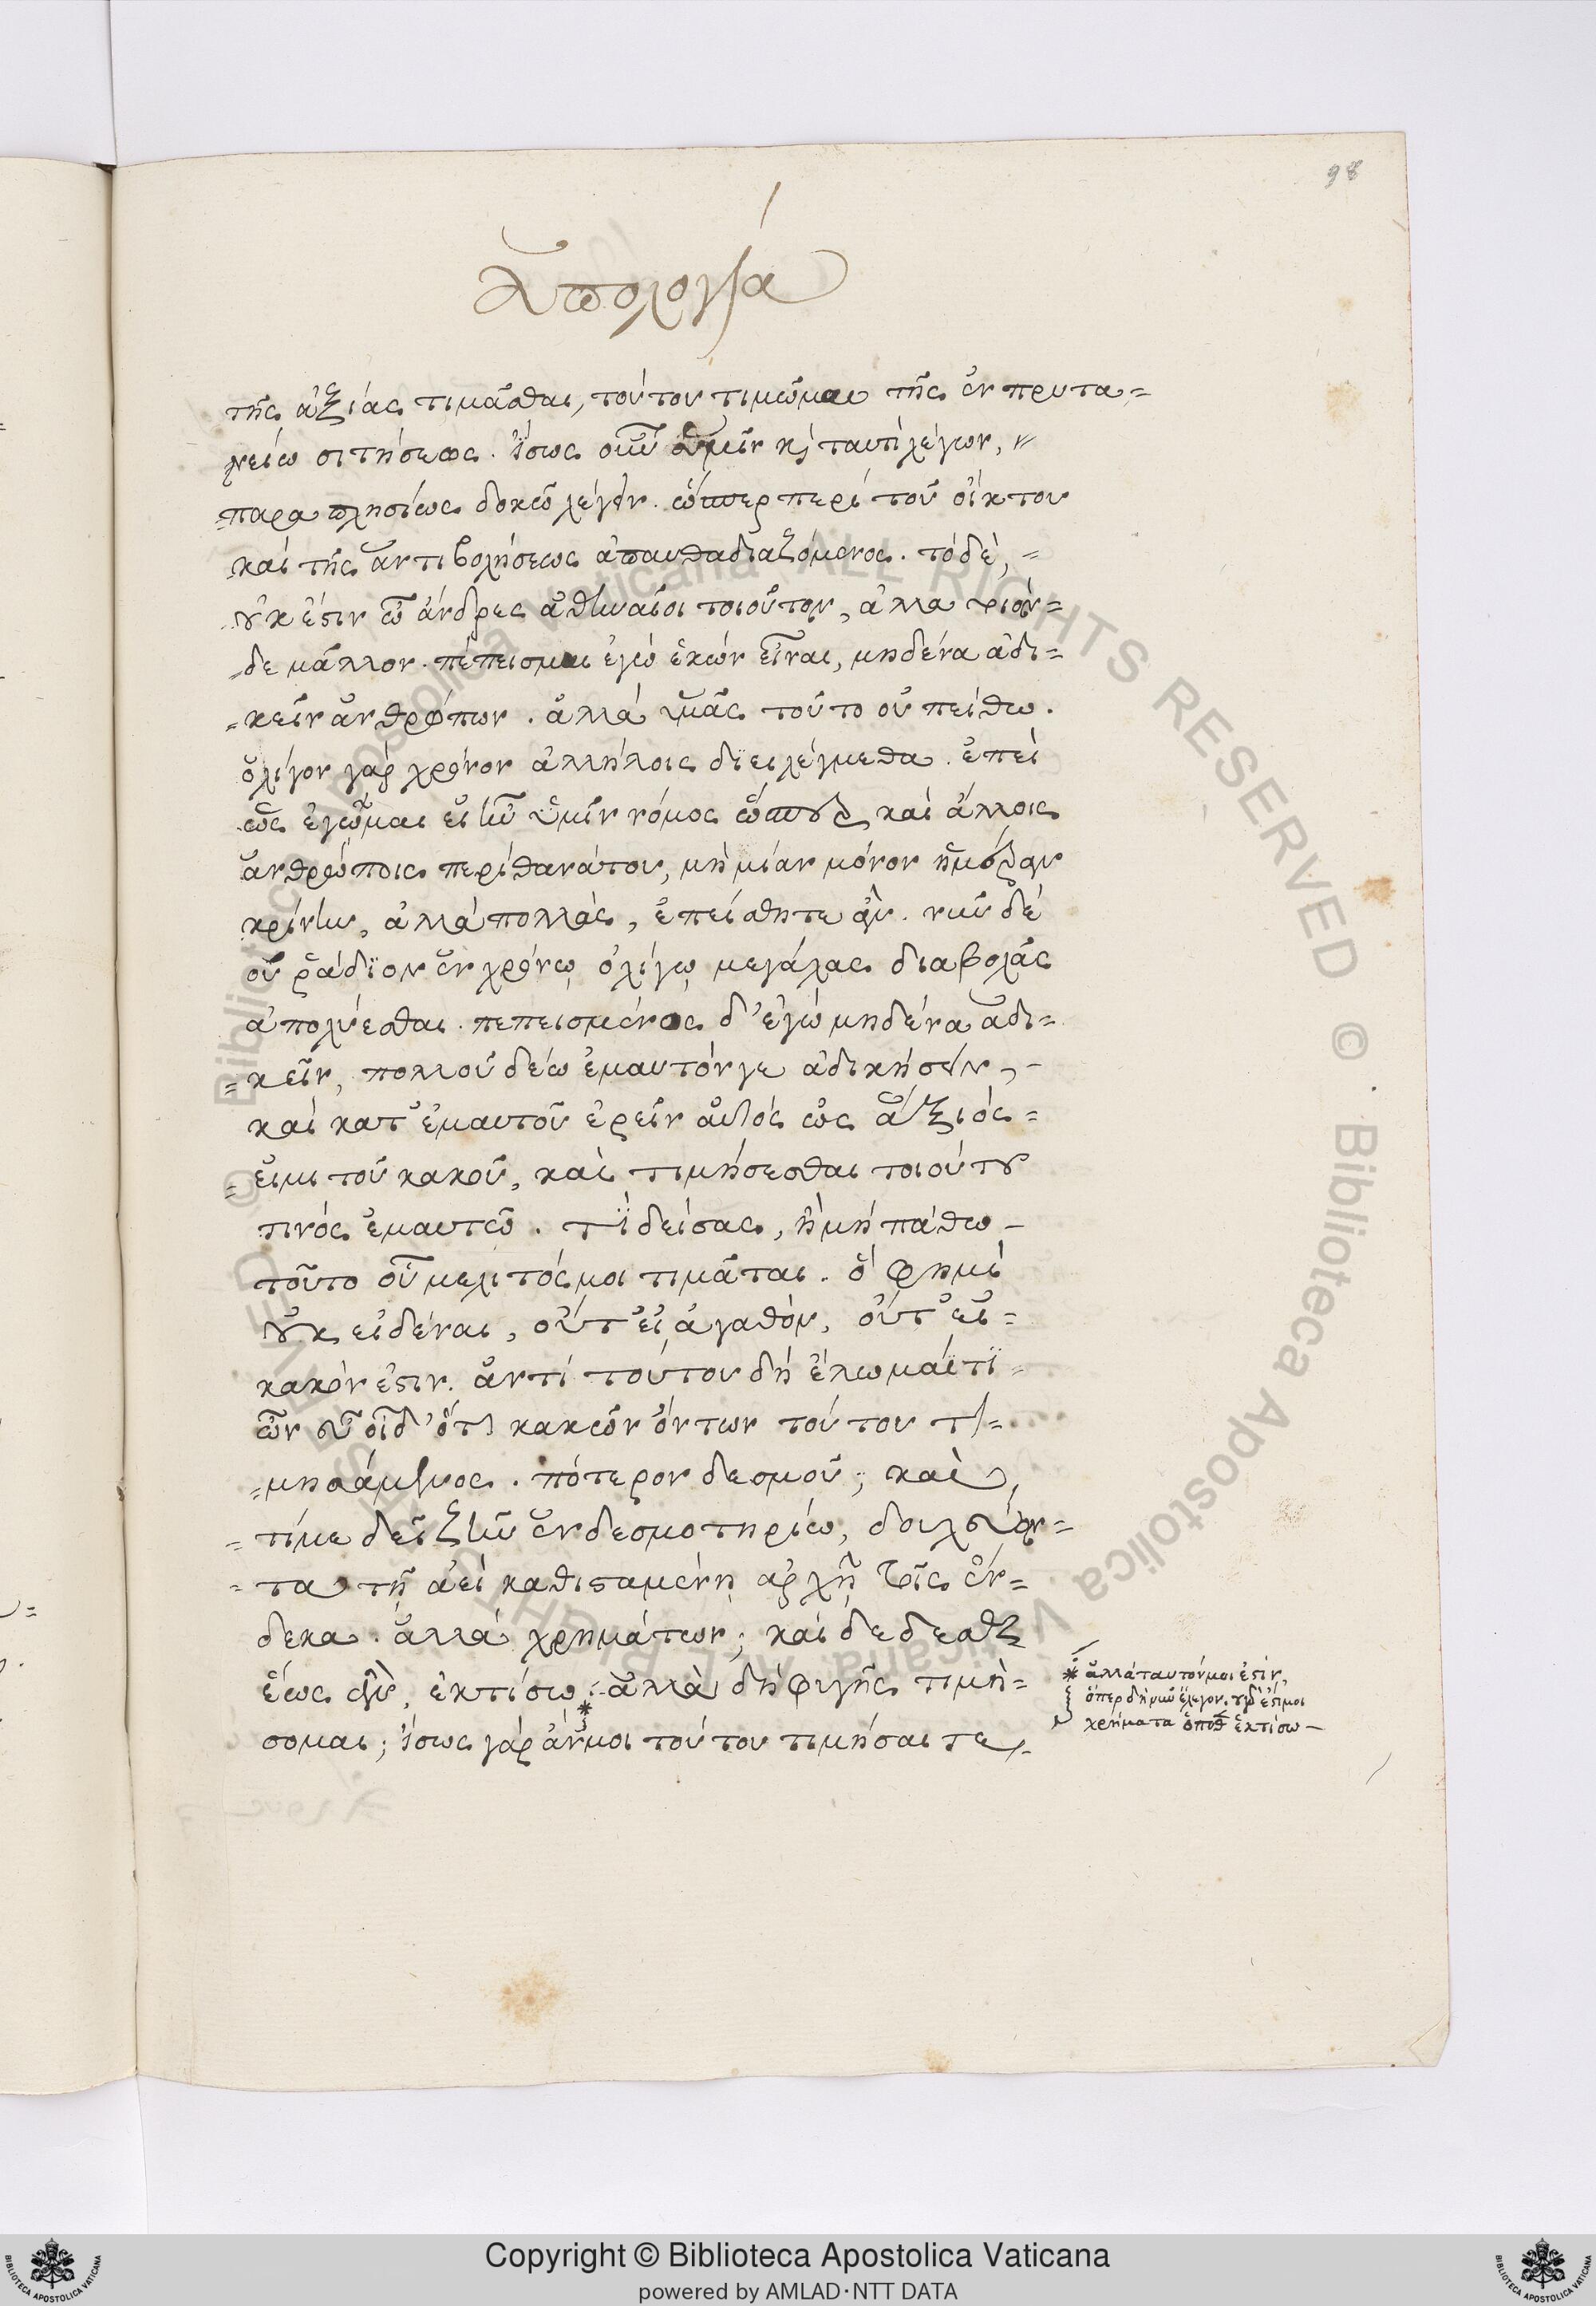 98
Ἀπολογία
τῆς ἀξίας τιμᾶσθαι, τούτου τιμῶμαι τῆς ἐν πρυτα=
νείω σιτήσεως. ἴσως οὖν ὑμῖν κ̀ ταυτὶ λέγων,
παραπλησίως δοκῶ λέγειν. ὥσπερ περὶ τοῦ οἴκτου
καὶ τῆς ἀντιβολήσεως ἀπαυθαδιαζόμενος. τὸ δὲ, =
οὐκ ἔστιν ὦ ἄνδρες ἀθηναῖοι τοιοῦτον, ἀλλὰ τοιόν=
=δε μᾶλλον. πέπεισμαι ἐγὼ ἑκὼν εἶναι, μηδένα ἀδι=
=κεῖν ἀνθρώπων. ἀλλὰ ὑμᾶς τοῦτο οὐ πείθω.
ὀλίγον γὰρ χρόνον ἀλλήλοις διειλέγμεθα. ἐπεὶ
ὡς ἐγῶμαι εἰ ἦν ὑμῖν νόμος ὥσπερ καὶ ἄλλοις
ἀνθρώποις περὶ θανάτου, μὴ μίαν μόνον ἡμέραν
κρίνειν, ἀλλὰ πολλὰς, ἐπείσθητε ἄν. νῦν δὲ
οὐ ῥάδϊον ἐν χρόνω ὀλίγω μεγάλας διαβολὰς
ἀπολύεσθαι. πεπεισμένος δ' ἐγὼ μηδένα ἀδι=
=κεῖν, πολλοῦ δέω ἐμαυτόν γε ἀδικήσειν, -
καὶ κατ' ἐμαυτοῦ ἐρεῖν αὐτὸς ὡς ἄξιός =
=εἰμι τοῦ κακοῦ, καὶ τιμήσεσθαι τοιούτου
τινὸς ἐμαυτῶ. τί δείσας, ἢ μὴ πάθω -
τοῦτο οὗ μέλιτός μοι τιμᾶται. ὅ φημὶ
οὐκ εἰδέναι, οὔτ' εἰ ἀγαθὸν, οὔτ' εἰ =
κακόν ἐστιν. ἀντὶ τούτου δὴ ἕλωμαί τϊ =
ὧν εὖ οἶδ' ὅτι κακῶν ὄντων τούτου τι=
=μησάμενος. πότερον δεσμοῦ; καὶ,
=τί με δεῖ ζῆν ἐν δεσμοτηρίω, δουλεύον=
=τα τῆ ἀεὶ καθισταμένη ἀρχῆ τοῖς ἕν=
δεκα. ἀλλὰ χρημάτων; καὶ δεδέσθαι
ἕως ἂν ἐκτίσω; * ἀλλὰ δὴ φυγῆς τιμή=
σομαι; ἴσως γὰρ ἄν μοι τούτου τιμήσαιτε.
* ἀλλὰ ταυτόν μοι ἐστὶν,
ὅπερ δὴ νῦν ἔλεγον. οὐ γὰρ ἔστι μοι
χρήματα ὁπόθεν ἐκτίσω -
© Biblioteca Apostolica Vaticana · ALL RIGHTS RESERVED © · Biblioteca Apostolica Vaticana · ALL RIGHTS RESERVED
Copyright © Biblioteca Apostolica Vaticana
powered by AMLAD·NTT DATA
BIBLIOTECA APOSTOLICA VATICANA
BIBLIOTECA APOSTOLICA VATICANA